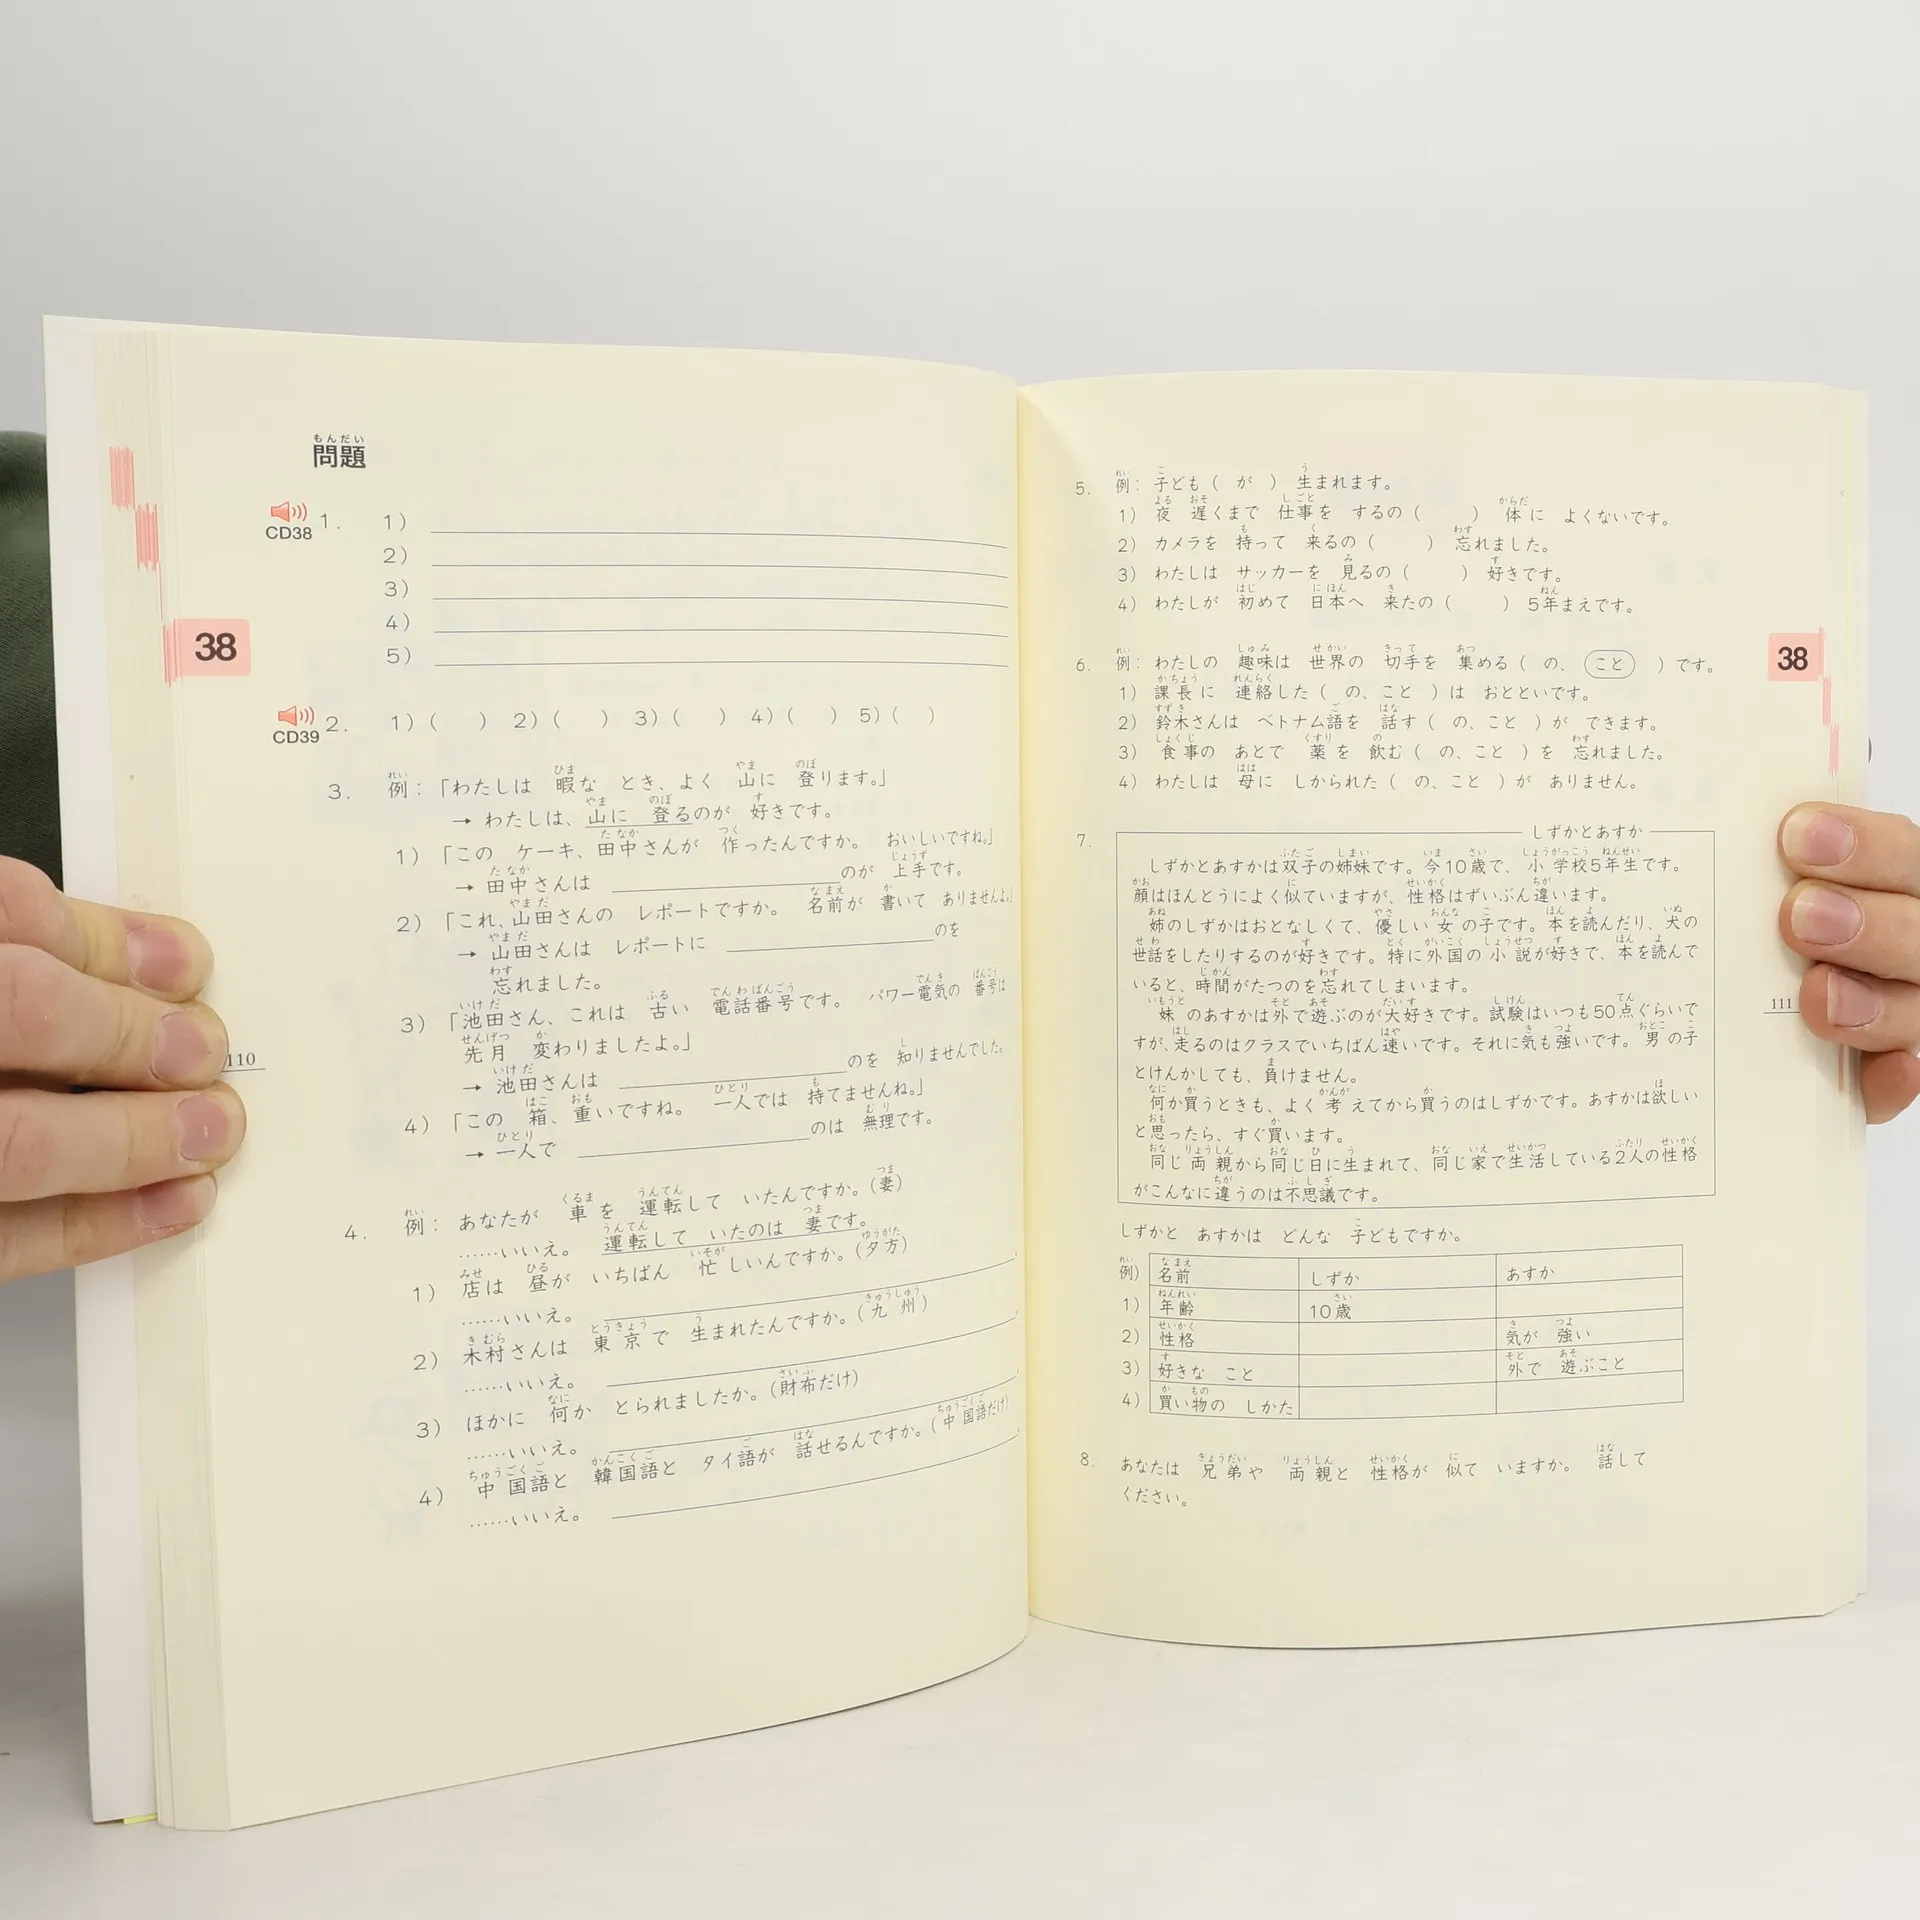 問題
CD38 1. 1)
2)
3)
4)
5)
CD39 2. 1)( ) 2)( ) 3)( ) 4)( ) 5)( )
3. 例:「わたしは 暇な とき、よく 山に 登ります。」
→ わたしは、山に 登るのが 好きです。
1)「この ケーキ、田中さんが 作ったんですか。 おいしいですね。」
→ 田中さんは ＿＿＿のが 上手です。
2)「これ、山田さんの レポートですか。 名前が 書いて ありませんよ。」
→ 山田さんは レポートに ＿＿＿のを
忘れました。
3)「池田さん、これは 古い 電話番号です。 パワー電気の 番号は
先月 変わりましたよ。」
→ 池田さんは ＿＿＿のを 知りませんでした。
4)「この 箱、重いですね。 一人では 持てませんね。」
→ 一人で ＿＿＿のは 無理です。
4. 例: あなたが 車を 運転して いたんですか。(妻)
……いいえ。 運転して いたのは 妻です。
1) 店は 昼が いちばん 忙しいんですか。(夕方)
……いいえ。
2) 木村さんは 東京で 生まれたんですか。(九州)
……いいえ。
3) ほかに 何か とられましたか。(財布だけ)
……いいえ。
4) 中国語と 韓国語と タイ語が 話せるんですか。(中国語だけ)
……いいえ。
38
110
5. 例: 子ども( が ) 生まれます。
1) 夜 遅くまで 仕事を するの( ) 体に よくないです。
2) カメラを 持って 来るの( ) 忘れました。
3) わたしは サッカーを 見るの( ) 好きです。
4) わたしが 初めて 日本へ 来たの( ) 5年まえです。
6. 例: わたしの 趣味は 世界の 切手を 集める( の、 こと )です。
1) 課長に 連絡した( の、こと )は おとといです。
2) 鈴木さんは ベトナム語を 話す( の、こと )が できます。
3) 食事の あとで 薬を 飲む( の、こと )を 忘れました。
4) わたしは 母に しかられた( の、こと )が ありません。
7. しずかとあすか
しずかとあすかは双子の姉妹です。今10歳で、小学校5年生です。
顔はほんとうによく似ていますが、性格はずいぶん違います。
姉のしずかはおとなしくて、優しい女の子です。本を読んだり、犬の
世話をしたりするのが好きです。特に外国の小説が好きで、本を読んで
いると、時間がたつのを忘れてしまいます。
妹のあすかは外で遊ぶのが大好きです。試験はいつも50点ぐらいで
すが、走るのはクラスでいちばん速いです。それに気も強いです。男の子
とけんかしても、負けません。
何か買うときも、よく考えてから買うのはしずかです。あすかは欲しい
と思ったら、すぐ買います。
同じ両親から同じ日に生まれて、同じ家で生活している2人の性格
がこんなに違うのは不思議です。
しずかと あすかは どんな 子どもですか。
例) 名前 しずか あすか
1) 年齢 10歳
2) 性格 気が 強い
3) 好きな こと 外で 遊ぶこと
4) 買い物の しかた
8. あなたは 兄弟や 両親と 性格が 似て いますか。 話して
ください。
38
111